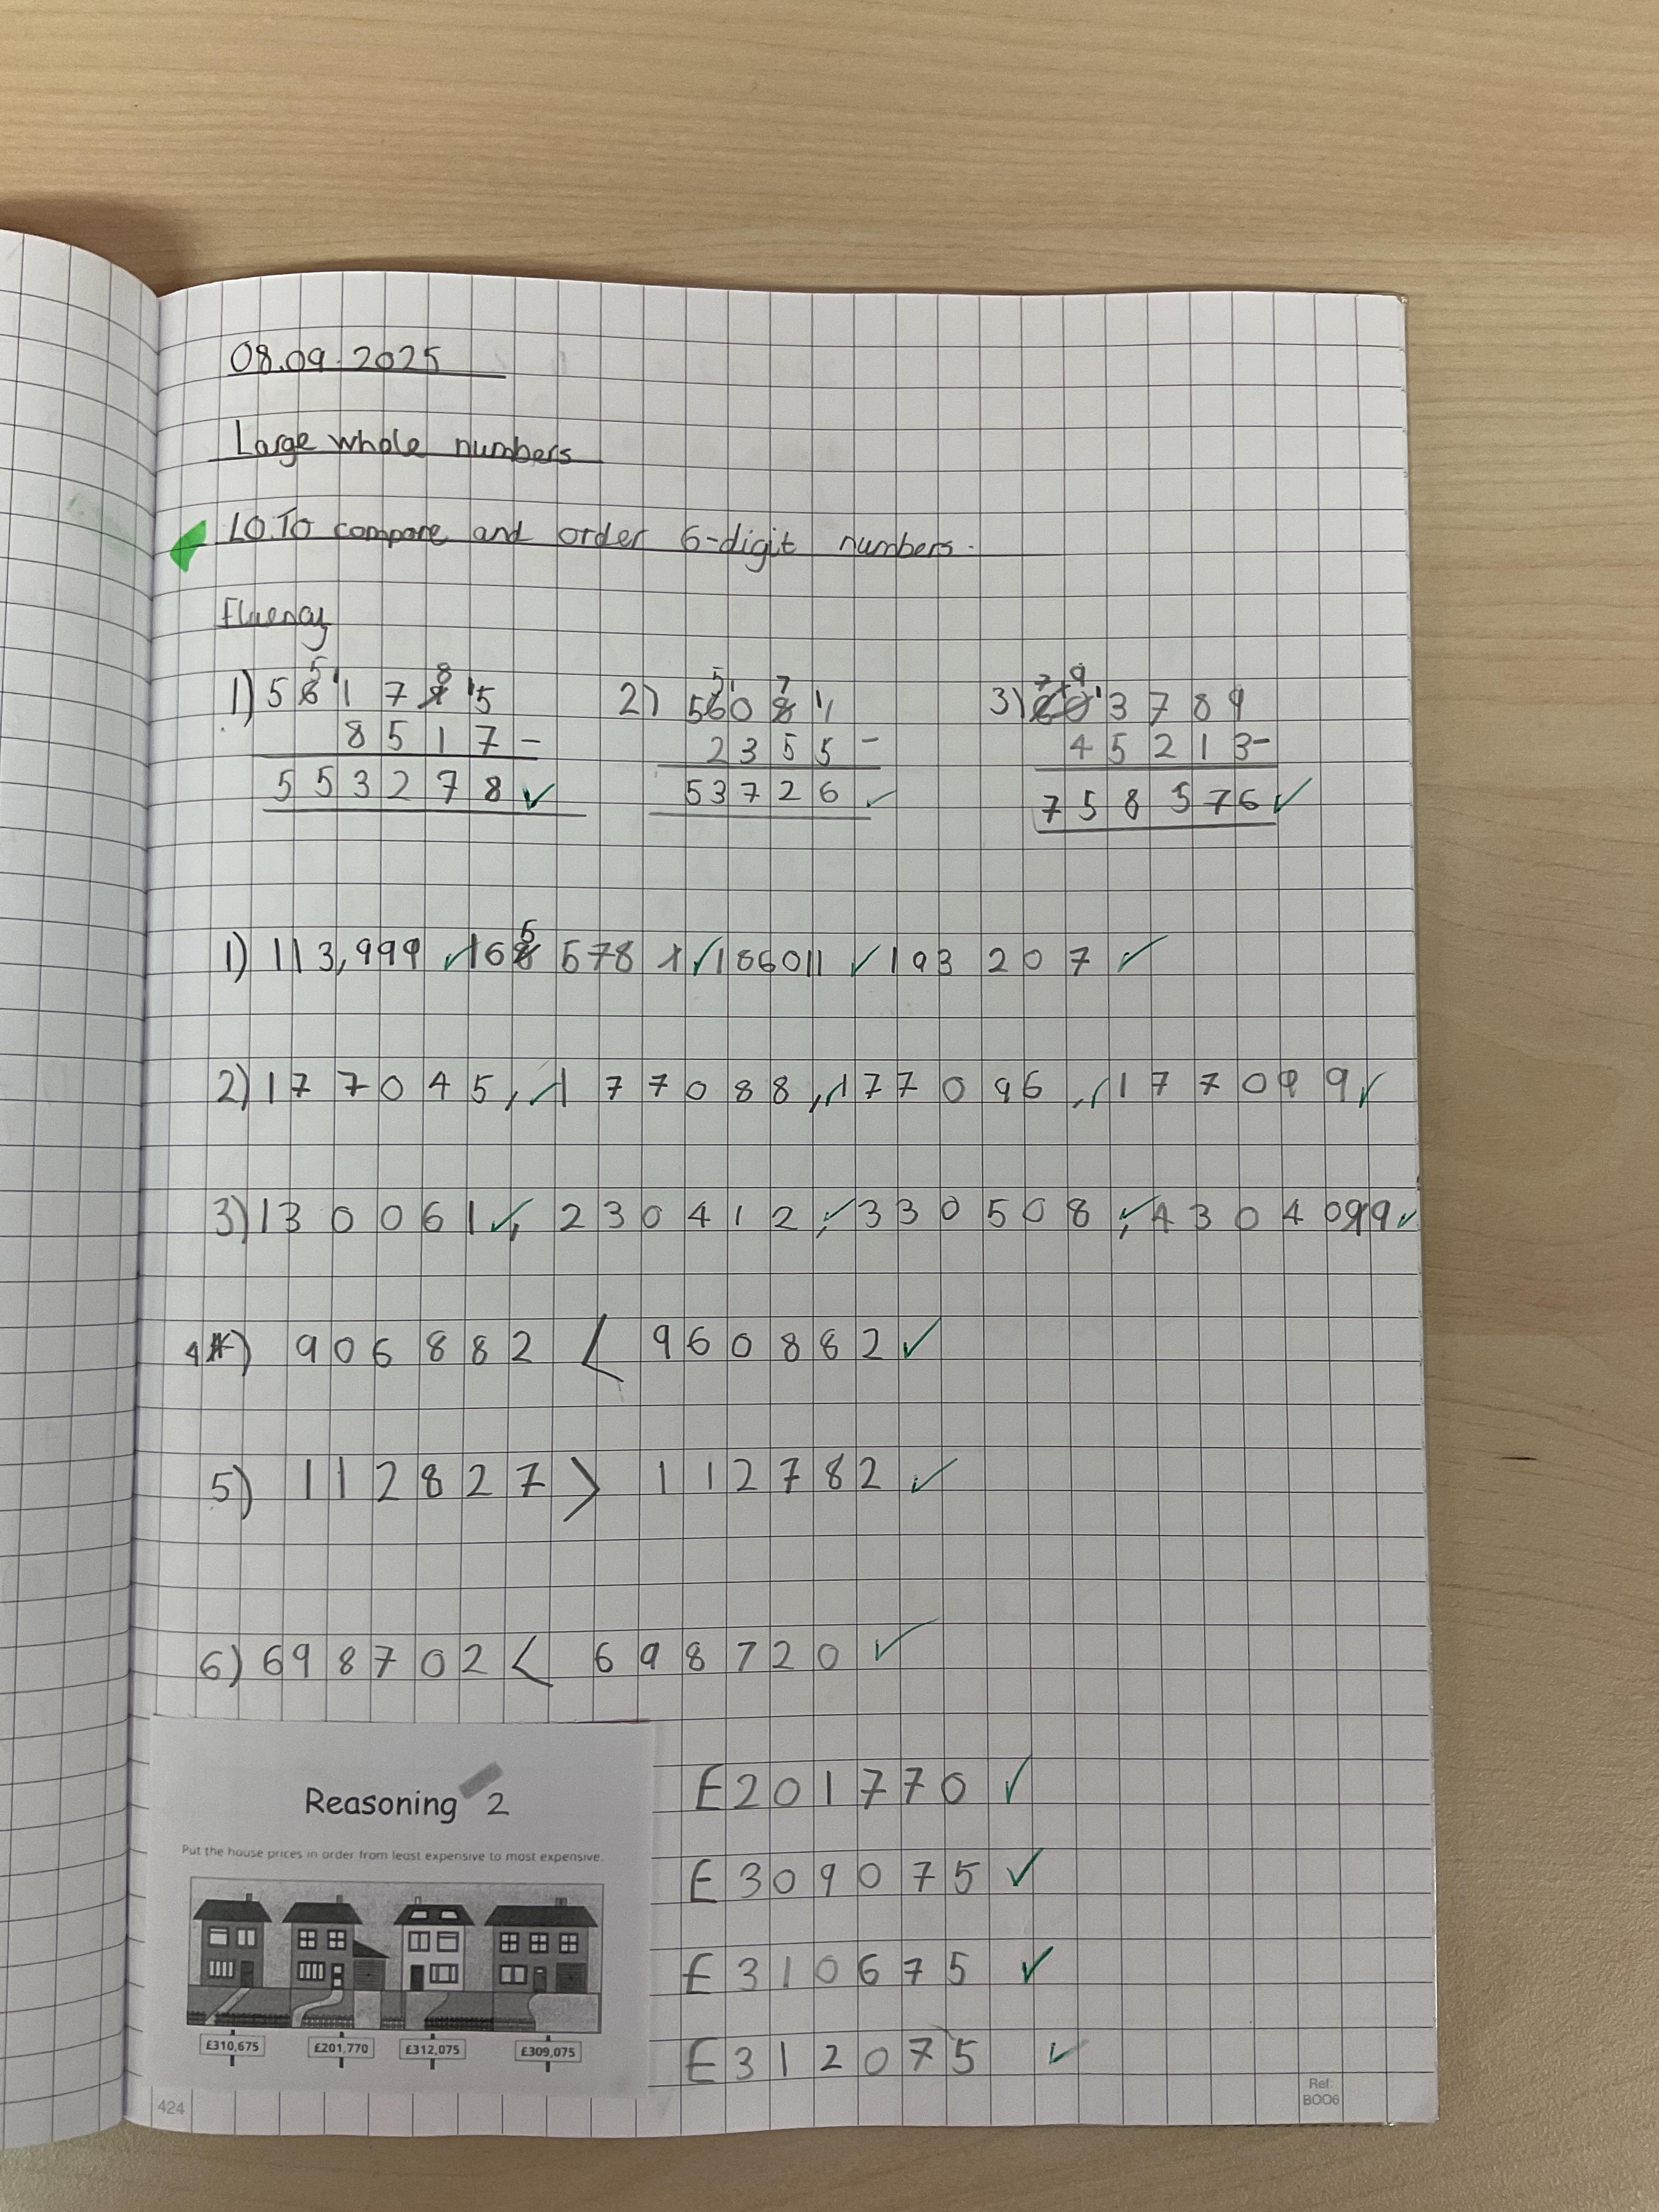 08.09.2025
Large whole numbers
LO.To compare and order 6-digit numbers.
Fluency
1) 561795 2) 56081 3) 803789
8517- 2355- 45213-
553278 ✓ 53726 ✓ 758576 ✓
1) 113,999 ✓ 165 578 ✓ 186011 ✓ 193 207 ✓
2) 177045, ✓ 177088, ✓ 177096, ✓ 177099 ✓
3) 130061 ✓, 230412, ✓ 330508, ✓ 430499 ✓
4) 906882 < 960882 ✓
5) 112827 > 112782 ✓
6) 698702 < 698720 ✓
Reasoning 2
Put the house prices in order from least expensive to most expensive.
£310,675 £201,770 £312,075 £309,075
£201770 ✓
£309075 ✓
£310675 ✓
£312075 ✓
424
Ref:
BOO6